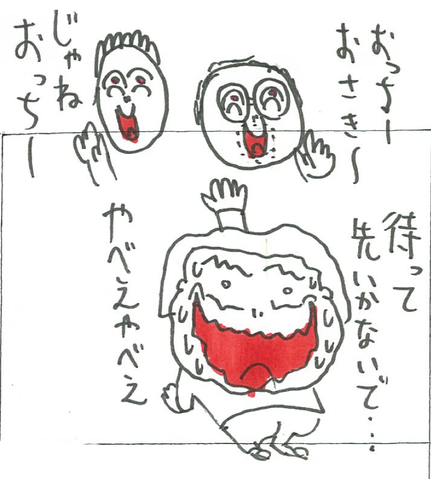 おっちー
おさき〜
じゃね
おっちー
待って
先いかないで…
やべえやべえ